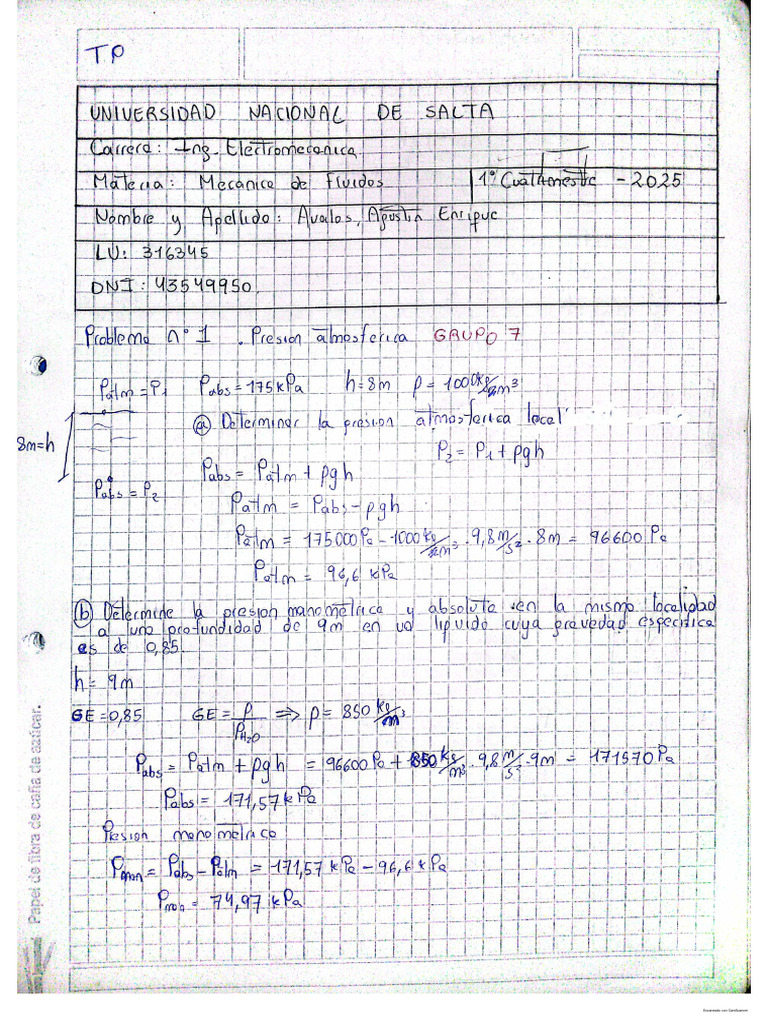 TP
UNIVERSIDAD NACIONAL DE SALTA
Carrera: Ing. Electromecanica
Materia: Mecánica de Fluidos 1° Cuatrimestre - 2025
Nombre y Apellido: Avalos, Agustín Enrique
LU: 316345
DNI: 43549950.
Problema n° 1 . Presion atmosferica GRUPO 7
Patm = P1 Pabs = 175 kPa h = 8m ρ = 1000 kg/m³
ⓐ Determinar la presion atmosferica local
8m = h
P2 = P1 + ρgh
Pabs = Patm + ρgh
Pabs = P2
Patm = Pabs - ρgh
Patm = 175000 Pa - 1000 kg/m³ . 9,8 m/s² . 8m = 96600 Pa
Patm = 96,6 kPa
ⓑ Determine la presion manometrica y absoluta en la misma localidad
a una profundidad de 9m en un liquido cuya gravedad especifica
es de 0,85.
h = 9m
GE = 0,85 GE = ρ/ρH2O ⇒ ρ = 850 kg/m³
Pabs = Patm + ρgh = 96600 Pa + 850 kg/m³ . 9,8 m/s² . 9m = 171570 Pa
Pabs = 171,57 kPa
Presion manometrica
Pman = Pabs - Patm = 171,57 kPa - 96,6 kPa
Pman = 74,97 kPa
Papel de fibra de caña de azúcar.
Escaneado con CamScanner